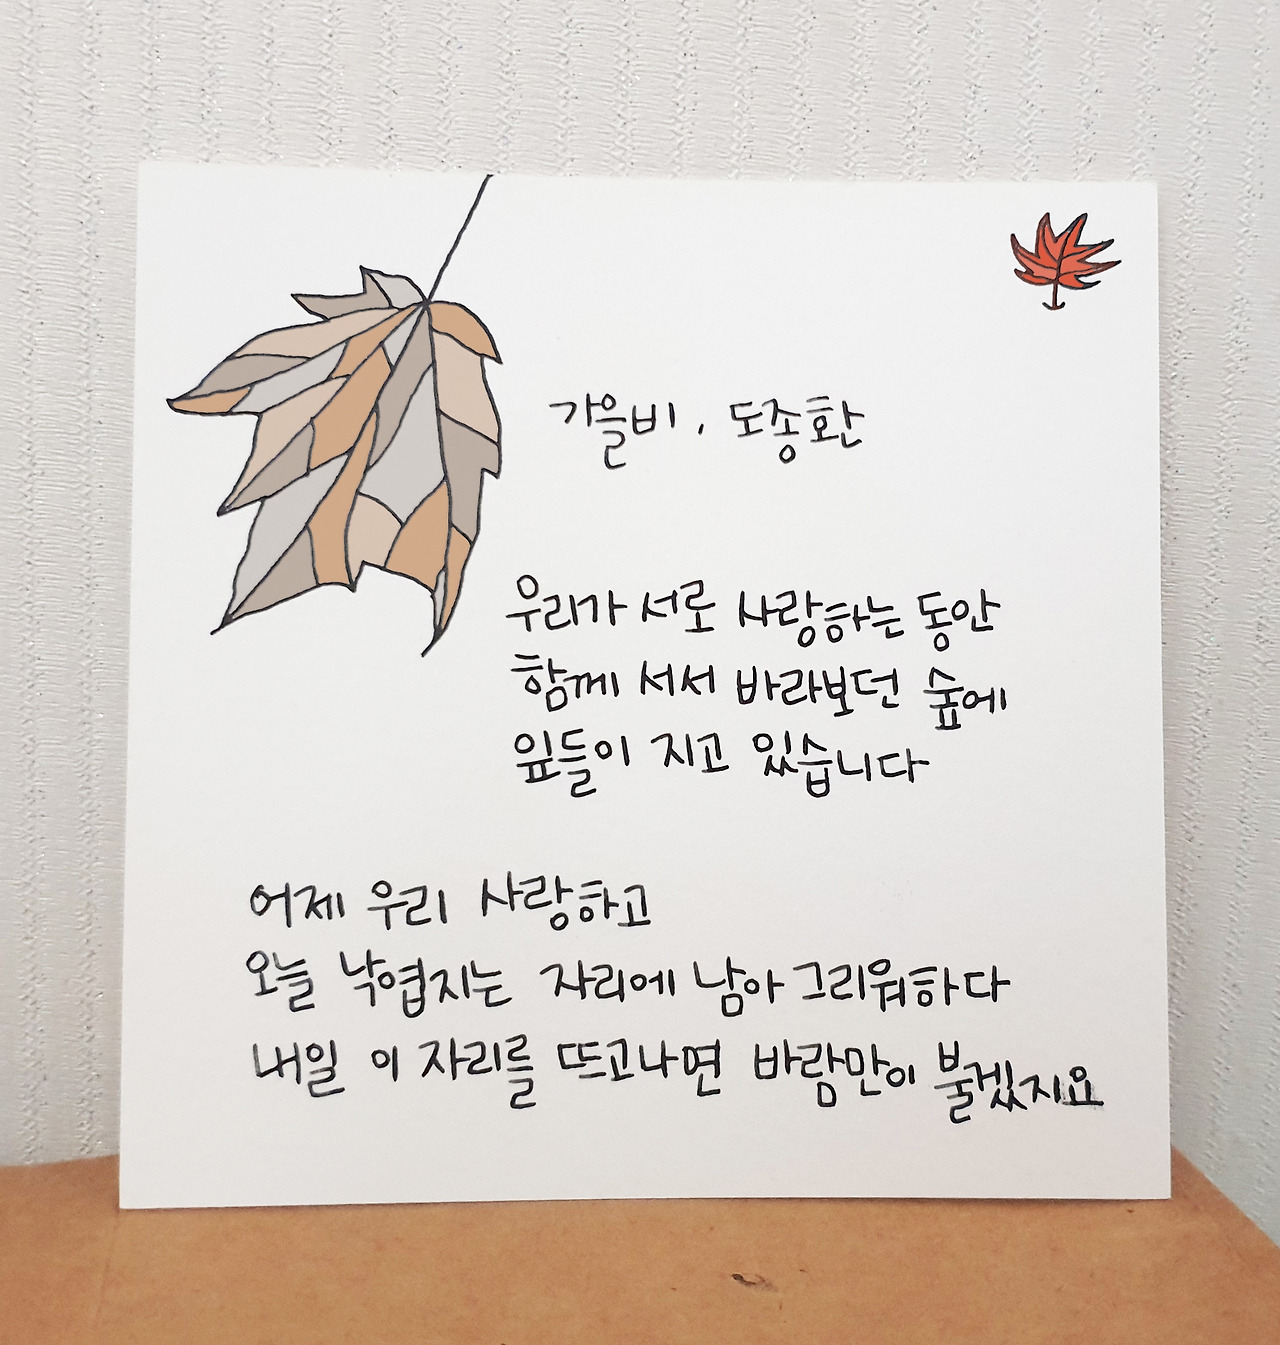 가을비, 도종환
우리가 서로 사랑하는 동안
함께 서서 바라보던 숲에
잎들이 지고 있습니다
어제 우리 사랑하고
오늘 낙엽지는 자리에 남아 그리워하다
내일 이 자리를 뜨고나면 바람만이 불겠지요